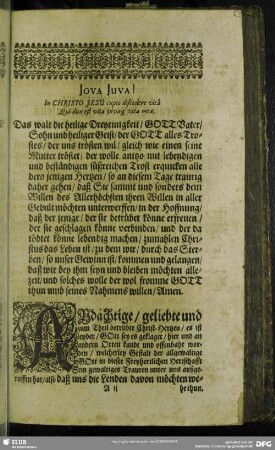 JOVA JUVA!
In CHRISTO JESU cupio discedere vitâ
Das walt die heilige Dreyeinigkeit / GOTT Vater /
Sohn und heiliger Geist / der GOTT alles Tro-
stes / der uns trösten wil / gleich wie einen seine
Mutter tröstet / der wolle antzo mit lebendigen
und beständigen süßreichen Trost erquicken alle
dero jenigen Hertzen / so an diesem Tage traurig
daher gehen / daß Sie sammt und sonders dem
Willen des Allerhöchsten ihren Willen in aller
Gedult möchten unterwerffen / in der Hoffnung /
daß der jenige / der sie betrübet könne erfreuen /
der sie geschlagen könne verbinden / und der da
tödtet könne lebendig machen / zumahlen Chri-
stus das Leben ist / zu dem wir / durch das Ster-
ben / so unser Gewinn ist / kommen und gelangen /
daß wir bey ihm seyn und bleiben möchten alle-
zeit / und solches wolle der wol fromme GOTT
thun umb seines Nahmens willen / Amen.
ANdächtige / geliebte und
zum Theil betrübte Christ-Hertzen / es ist
leyder / Gott sey es geklaget / hier und an
andern Orten kundt und offenbahr wor-
den / welcherley Gestalt der allgewaltige
GOtt in dieser Freyherrlichen Herrschafft
Ein gewaltiges Trauren unter uns außge-
ruffen hat / also daß uns die Lenden davon möchten we-
A ij
SLUB